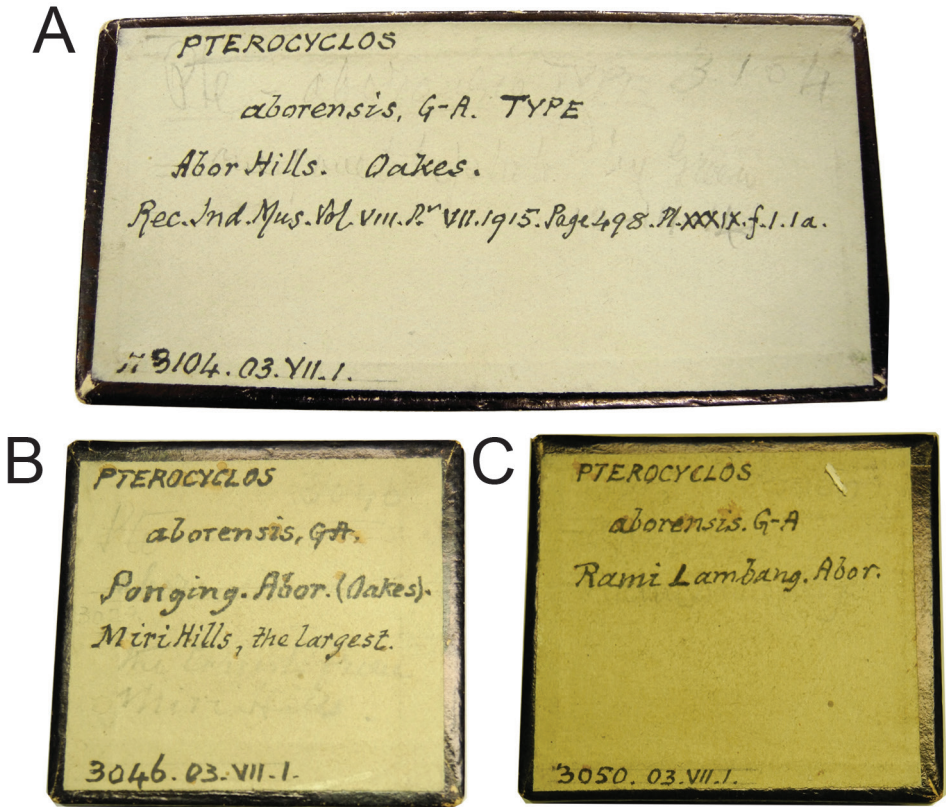 A
PTEROCYCLOS
aborensis, G-A. TYPE
Abor Hills. Oakes.
Rec. Ind. Mus. Vol. VIII. Pt VII. 1915. Page 498. Pl. XXXIX. f. 1. 1a.
3104. 03. VII. 1.
B
PTEROCYCLOS
aborensis, G-A.
Ponging. Abor. (Oakes).
Miri Hills, the largest.
3046. 03. VII. 1.
C
PTEROCYCLOS
aborensis. G-A
Rami Lambang. Abor.
3050. 03. VII. 1.